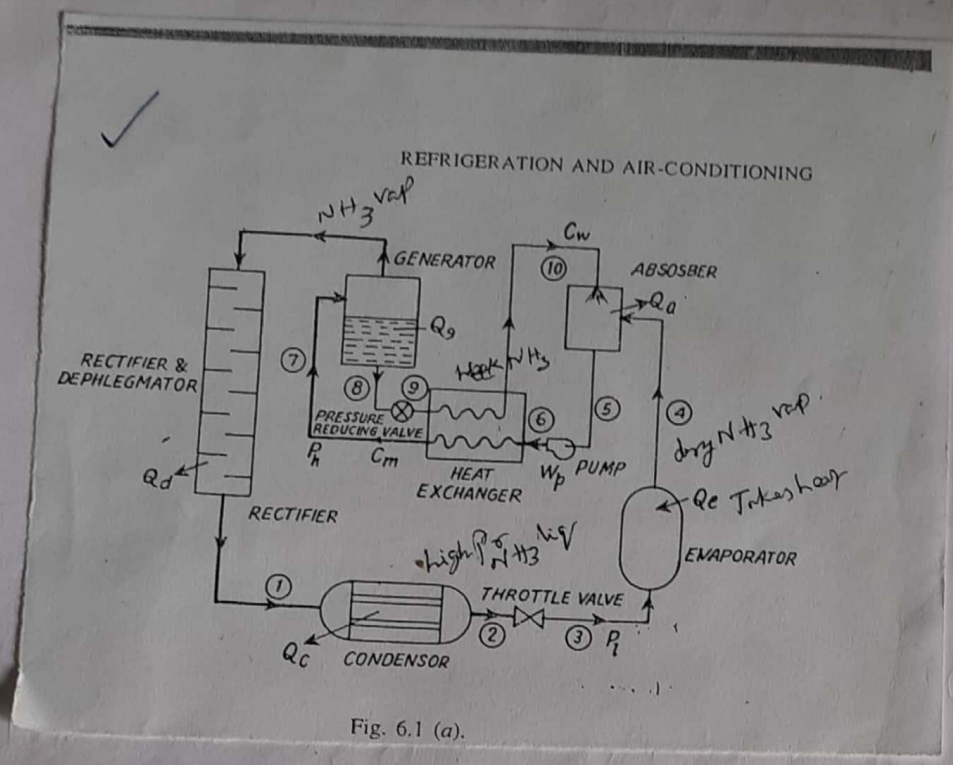 REFRIGERATION AND AIR-CONDITIONING
NH3 vap
Cw
GENERATOR
10
ABSOSBER
Qa
Qg
RECTIFIER &
DEPHLEGMATOR
7
NH3
8
9
PRESSURE
REDUCING VALVE
6
5
4
dry NH3 vap.
Ph
Cm
HEAT
EXCHANGER
Wp
PUMP
Qd
Qe Takes heat
RECTIFIER
high Pr NH3 liq
EVAPORATOR
1
THROTTLE VALVE
2
3
Pl
Qc
CONDENSOR
Fig. 6.1 (a).